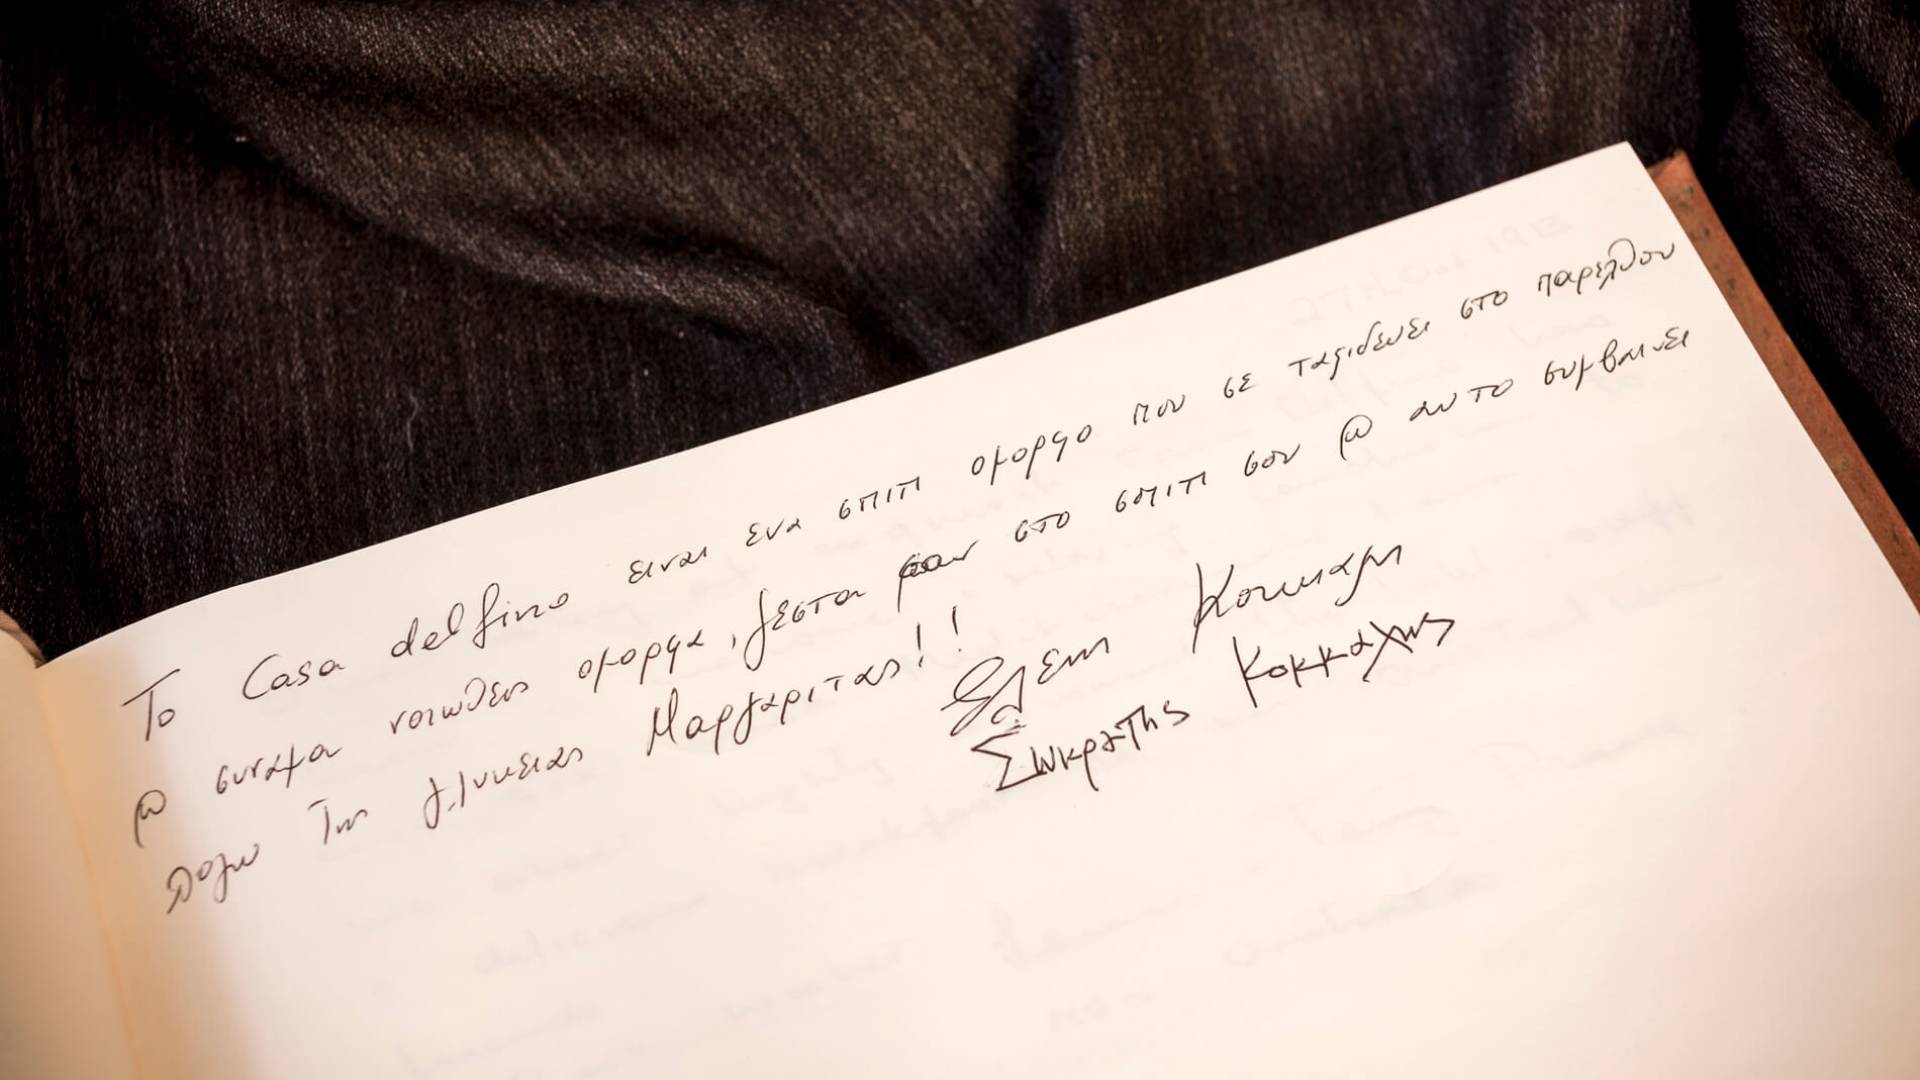 Το Casa delfino ειναι ενα σπιτι ομορφο που σε ταξιδευει στο παρελθον
@ συναμα νοιωθεις ομορφα, ζεστα σαν στο σπιτι σου @ αυτο συμβαινει
λογω της γλυκειας Μαργαριτας!!
Ελενη
Σωκρατης Κοκκαλης